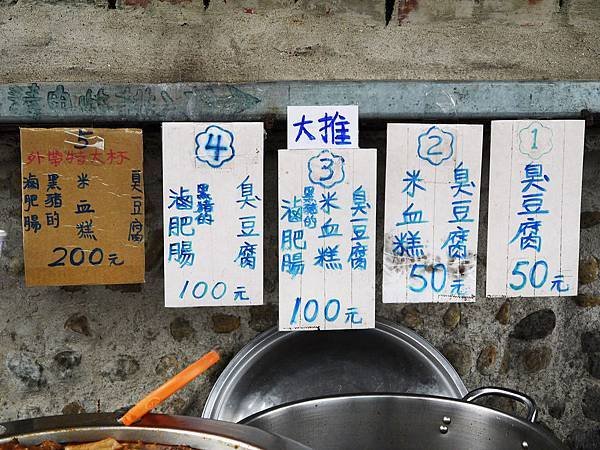 1
臭豆腐
50元
2
臭豆腐
米血糕
50元
大推
3
臭豆腐
米血糕
黑豬的
滷肥腸
100元
4
臭豆腐
黑豬的
滷肥腸
100元
5
外帶特大杯
臭豆腐
米血糕
黑豬的
滷肥腸
200元